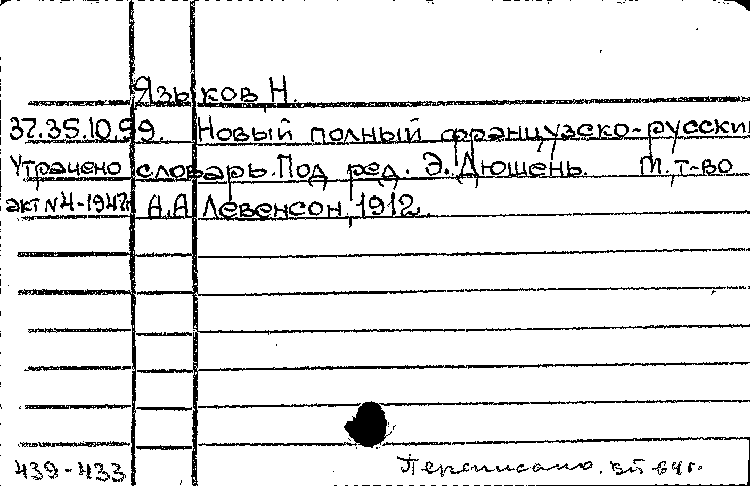 Языков Н.
37.35.10.59. Новый полный французско-русский
Утрачено словарь. Под ред. Э. Дюшень. М. т-во
акт №4-1947г. А.А Левенсон, 1912.
439-433 Переписано.